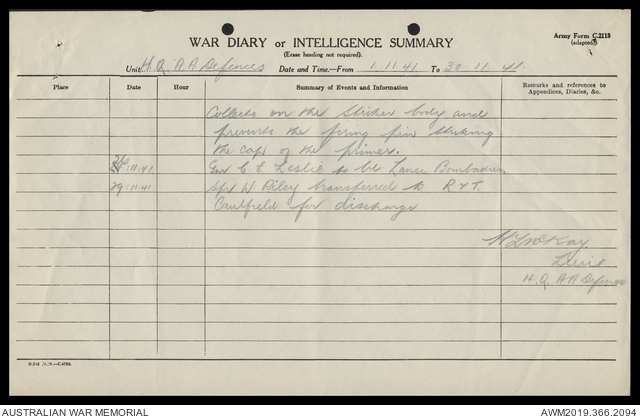 Army Form C.2118
(adapted)
WAR DIARY or INTELLIGENCE SUMMARY
(Erase heading not required).
Unit H.Q. A.A Defences Date and Time.—From 1.11.41 To 30.11.41.
Place Date Hour Summary of Events and Information Remarks and references to Appendices, Diaries, &c.
Collects on the Striker body and
prevents the firing pin striking
the cap of the primer.
:11:41 Gnr C E Leslie to be Lance Bombadier
29:11:41 Spr W Riley transferred to R&T.
Caulfield for discharge
Lieut
H.Q AA Defences
AUSTRALIAN WAR MEMORIAL
AWM2019.366.2094